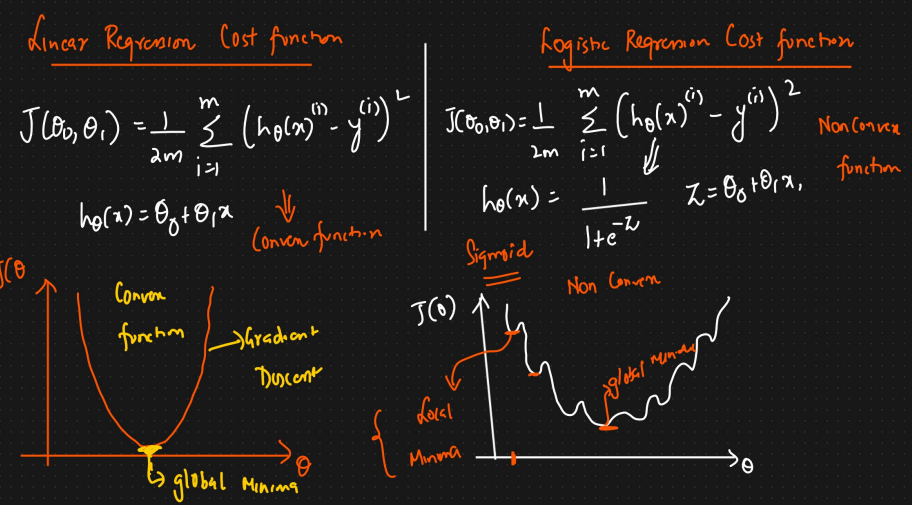 Linear Regression Cost function
J(θ₀,θ₁) = 1/2m Σ_{i=1}^{m} (hθ(x)^{(i)} - y^{(i)})²
hθ(x) = θ₀ + θ₁x
⇓
Convex function
J(θ
Convex
function
→ Gradient
Descent
θ
↳ global Minima
Logistic Regression Cost function
J(θ₀,θ₁) = 1/2m Σ_{i=1}^{m} (hθ(x)^{(i)} - y^{(i)})²
Non Convex
function
hθ(x) = 1/(1+e^{-z}) Z = θ₀ + θ₁x₁
Sigmoid
Non Convex
J(θ)
global Minima
Local
Minima
θ